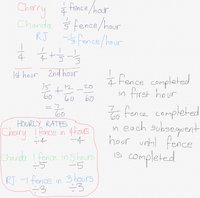 Cherry 1/4 fence/hour
Chanda 1/5 fence/hour
RJ -1/3 fence/hour
1/4 1/4 + 1/5 - 1/3
1st hour 2nd hour
15/60 + 12/60 - 20/60
= 7/60
1/4 fence completed
in first hour
7/60 fence completed
in each subsequent
hour until fence
is completed
HOURLY RATES
Cherry 1 fence in 4 hours
÷4 ÷4
Chanda 1 fence in 5 hours
÷5 ÷5
RJ -1 fence in 3 hours
÷3 ÷3